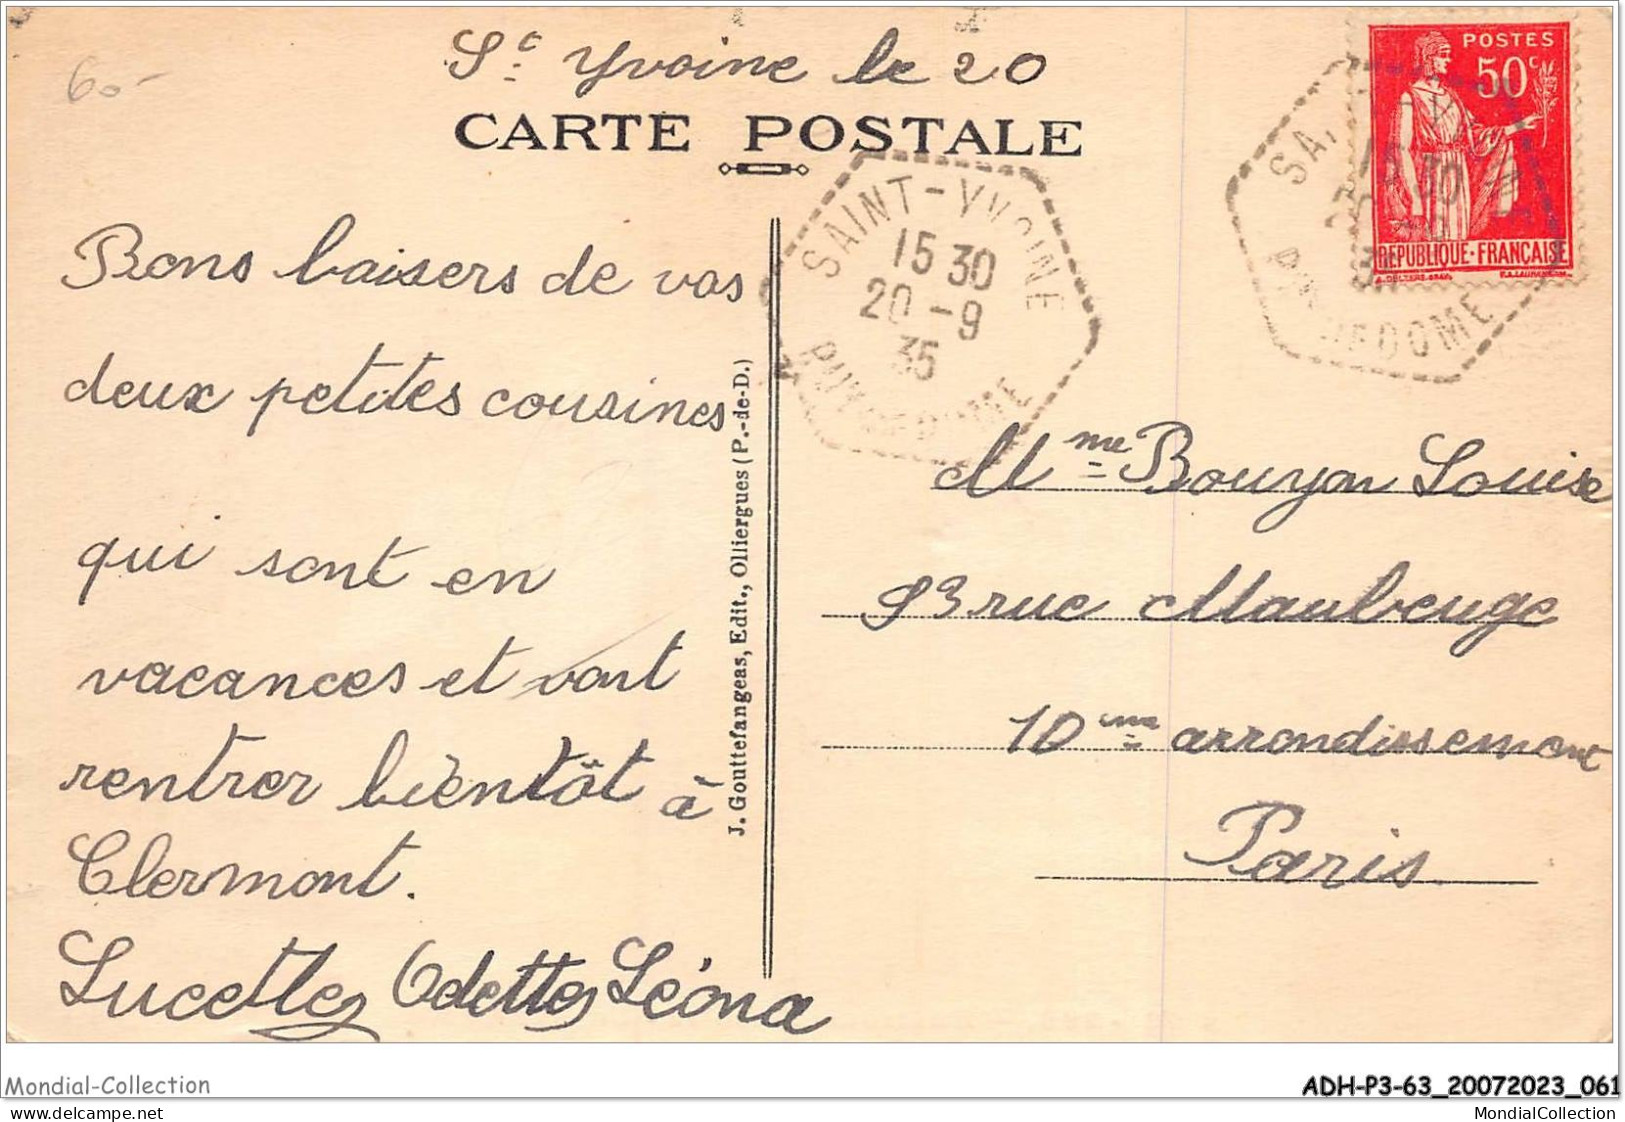 60-
St Yvoine le 20
CARTE POSTALE
POSTES
50c
REPUBLIQUE·FRANÇAISE
SAINT-YVOINE
15 30
20-9
35
PUY DE DOME
15 30
35
PUY DE DOME
Bons baisers de vos
deux petites cousines
qui sont en
vacances et vont
rentrer bientôt à
Clermont.
Lucette Odette Léona
J. Gouttefangeas, Edit., Olliergues (P.-de-D.)
Mme Bouyon Louise
93 rue Maubeuge
10me arrondissement
Paris
Mondial-Collection
ADH-P3-63_20072023_061
delcampe.net
MondialCollection